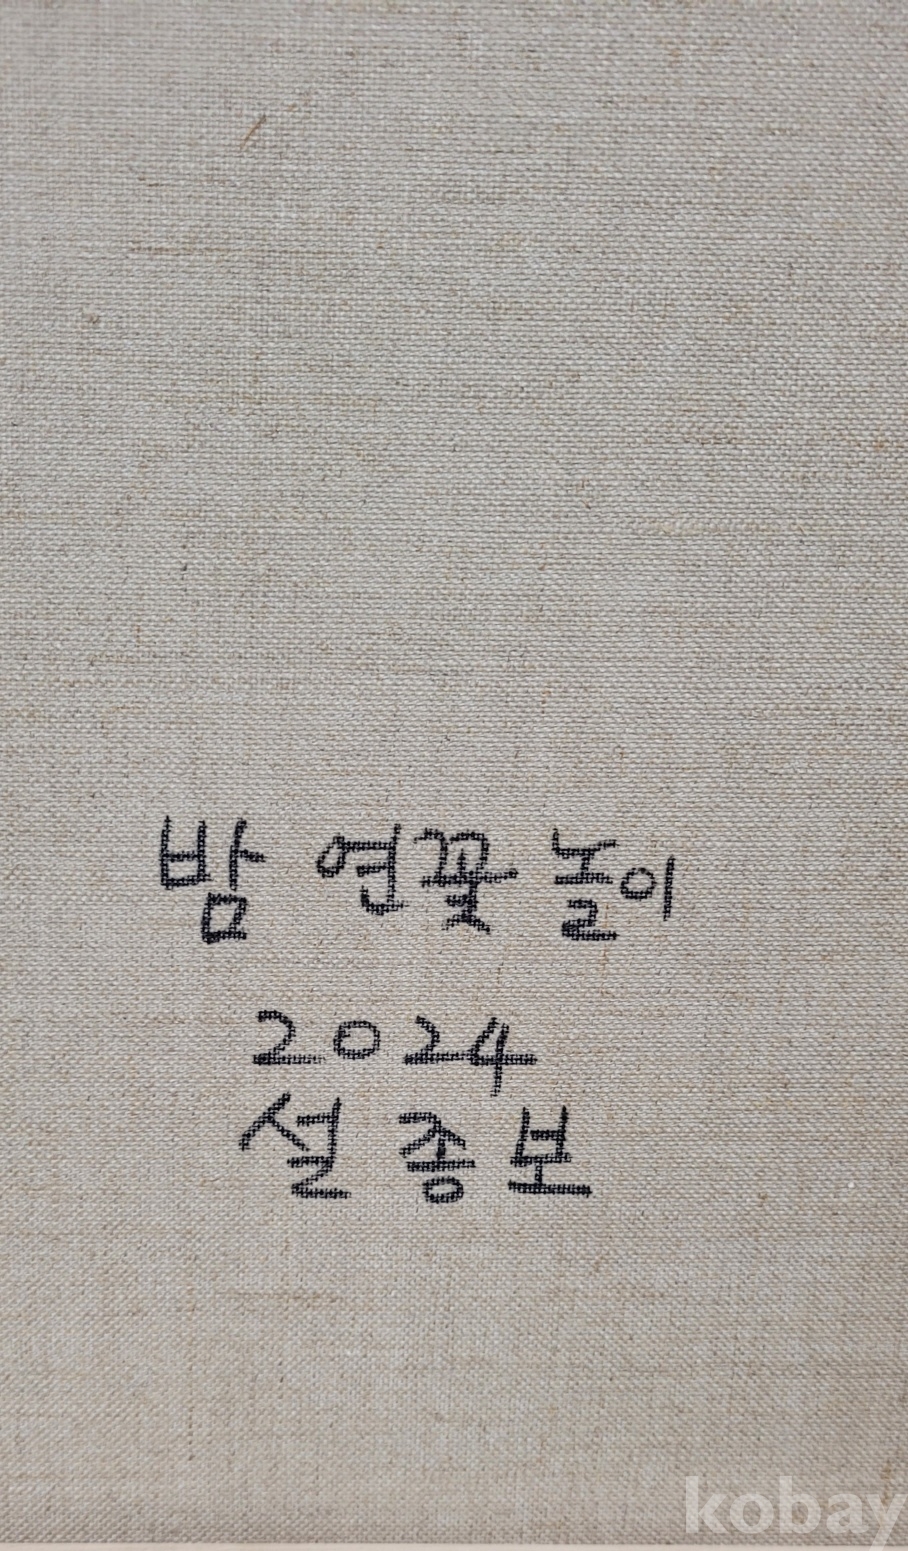 밤 연꽃 놀이
2024
설종보
kobay